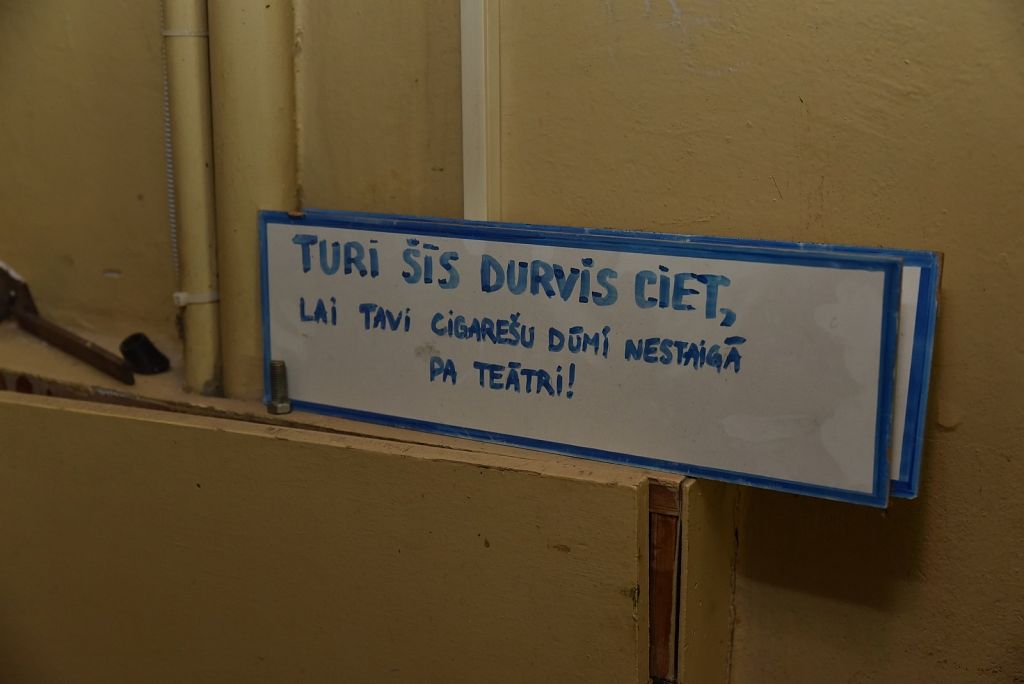 TURI ŠĪS DURVIS CIET,
LAI TAVI CIGAREŠU DŪMI NESTAIGĀ
PA TEĀTRI!